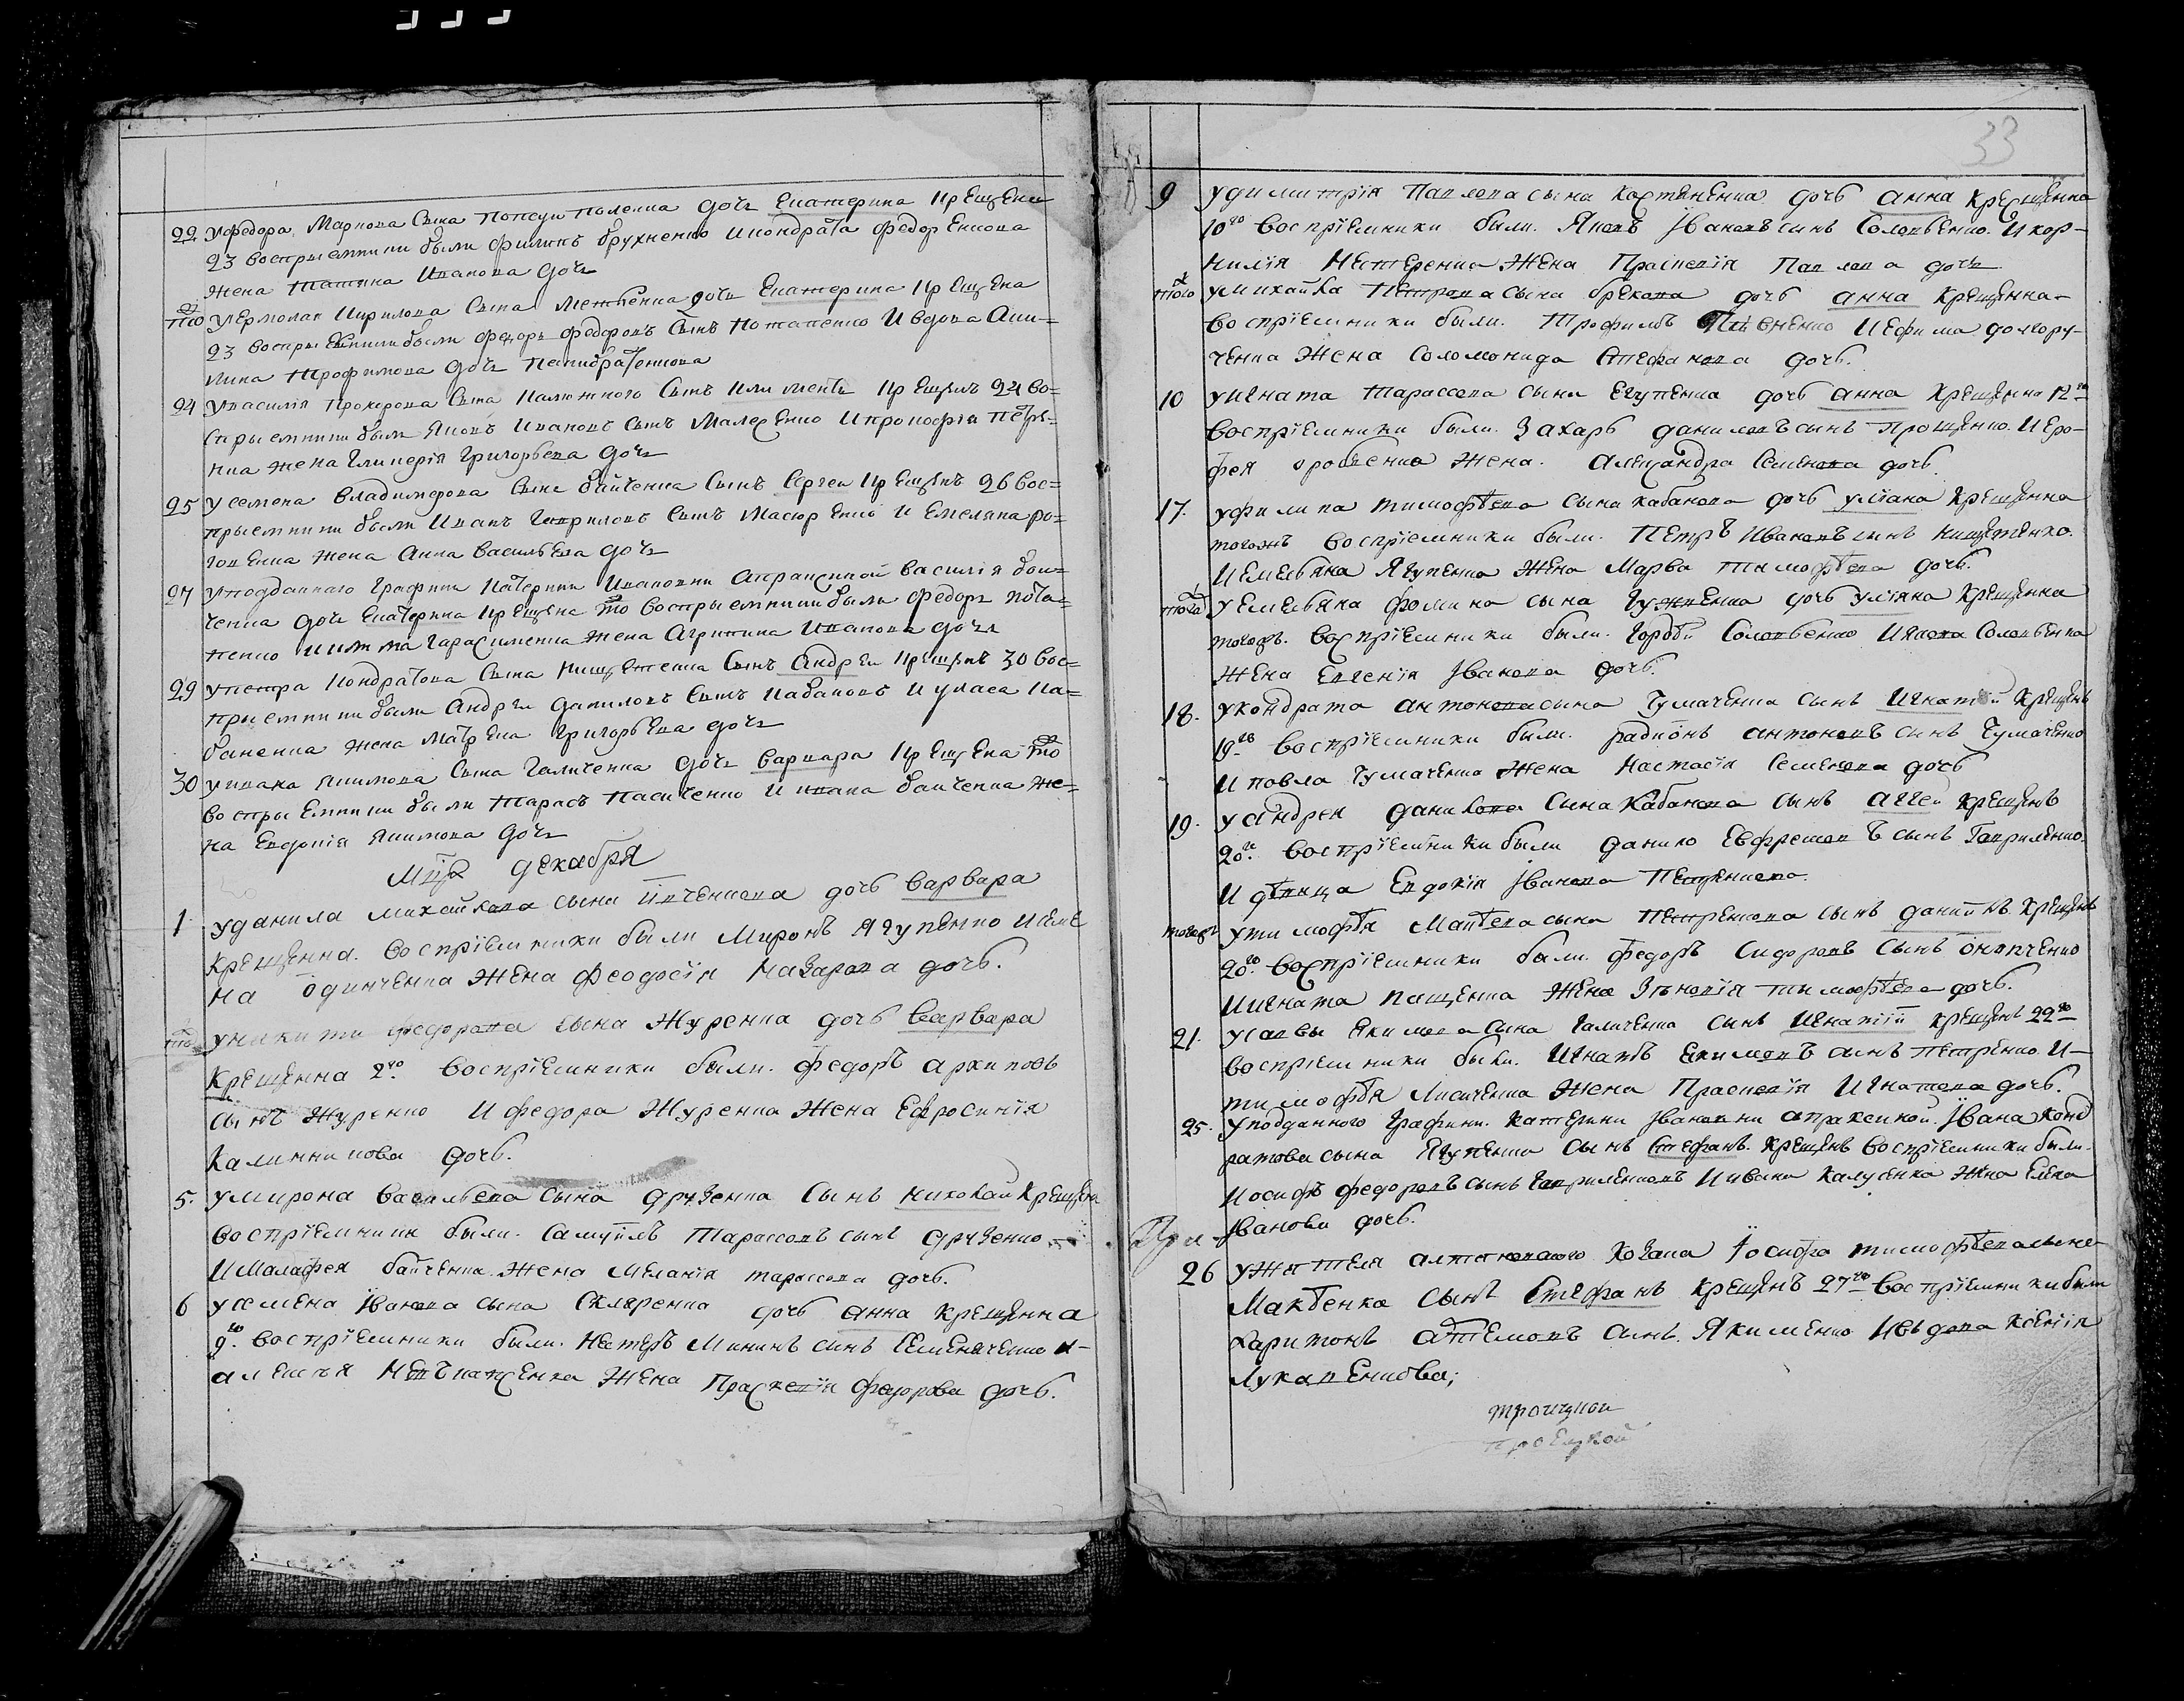 22 У федора Маркова сына попсуиполенка дочь Екатерина крещена
23 восприемники были филипъ брухненко и кондрата федоренкова
жена татияна Иванова дочь
того У Ермолая Кирилова сына дочь Екатерина крещена
23 восприемники были федоръ федоровъ сынъ потапенко и вдова Аки-
лина трофимова дочь
24 У василія прохорова сына калюжного сынъ климентъ крещенъ 24 во-
сприемники были яковъ Ивановъ сынъ Малеженко и прокофія петре-
нка жена гликерія григорьева дочь
25 У семена владимерова сына байченка сынъ сергеи крещенъ 26 вос-
приемники были Иванъ гавриловъ сынъ Масюренко и Емеляна ро-
говенка жена Анна васильева дочь
27 У подданнаго графини Катерини Ивановни Апраксиной василія бои-
ченка дочь Екатерина крещена то восприемники были федоръ пота-
пенко и гарасименка жена Агрипина Иванова дочь
29 У петра кондратова сына нищетенка сынъ Андреи крещенъ 30 вос-
приемники были Андреи даниловъ сынъ кабановъ и уласа ка-
баненка жена Матрена григорьева дочь
30 У ивана якимова сына галиченка дочь варвара крещена то
восприемники были тарасъ пасиченко и ивана байченка же-
на Евдокія якимова дочь
Мцъ декабря
1. У данила михайлова сына дочь варвара
крещенна. воспріемники были Миронъ Ягупенко и еме
на одинченка жена феодосія назарова дочь.
того У никити федорова сына журенка дочь варвара
крещенна 2го. воспріемники были. федоръ архиповъ
сынъ журенко и федора журенка жена Ефросинія
калинникова дочь.
5. У мирона васильева сына друзенка сынъ николаи крещенъ
воспріемники были. самуилъ тарассовъ сынъ друзенко
и малафея байченка жена меланія тарассова дочь.
6 У семена Іванова сына скляренка дочь анна крещенна
9го. воспріемники были. нестеръ мининъ синъ семеняченко и-
алексѣя жена Праскевія федорова дочь.
33
9 У димитрія Павлова сына костяненка дочь анна крещенна
10го воспріемники были. Яковъ Івановъ синъ Соловенко. И кор-
нилія нестеренка жена Праскевія Павлова дочь
того У михайла петрова сына брехова дочь анна крещенна-
воспріемники были. трофимъ и ефима долгору-
ченка жена соломонида стефанова дочь.
10 У игната тарассова сына егупенка дочь анна крещенна 12го
воспріемники были. захарь даниловъ сынъ прощенко. И еро-
фея жена. александра семенова дочь.
17. У филипа тимофѣева сына кабанова дочь уліана крещенна
тогожъ воспріемники были. петръ Ивановъ сынъ нищетенко.
и емельяна Ягупенка жена Марва тимофѣева дочь.
того У емельяна фомина сына гужвенка дочь уліяна крещенна
тогожъ. воспріемники были. гордѣй соловьенко и якова соловьенка
жена Евгенія Іванова дочь.
18. У кондрата антонова сына чумаченка сынъ Игнатій крещенъ
19го воспріемники были. радионъ антоновъ сынъ чумаченко
и павла чумаченко жена настасія семенова дочь
19. У андрея данилова сина кабанова сынъ аггей крещенъ
20го. воспріемники были данило евфремовъ сынъ гавриленко.
И дѣвица Евдокія Іванова
тогожъ У тимофѣя Матвѣева сына петренкова сынъ данийлъ. крещенъ
20го. воспріемники были. федоръ сидоровъ сынъ
и игната пащенка жена зѣновія тимофѣева дочь.
21. У савы якимова сына галиченка сынъ Игнатій крещенъ 22го
воспріемники были. Игнатъ Екимовъ синъ петренко. и-
тимофѣя лисиченка жена Праскевія Игнатова дочь.
25. У подданного графини. катерини Івановни апраксиной. Івана конд
ратова сына Ягупенка сынъ Стефанъ. крещенъ воспріемники были.
иосифъ федоровъ сынъ гавриленковъ и ивана жена Елена
Іванова дочь.
26 У жителя козака Іосифа тимофѣева сына
сынъ Стефанъ крещенъ 27го воспріемники были
харитонъ сынъ. Якименко и вдова ксенія
Лука
троицкой
троецкой